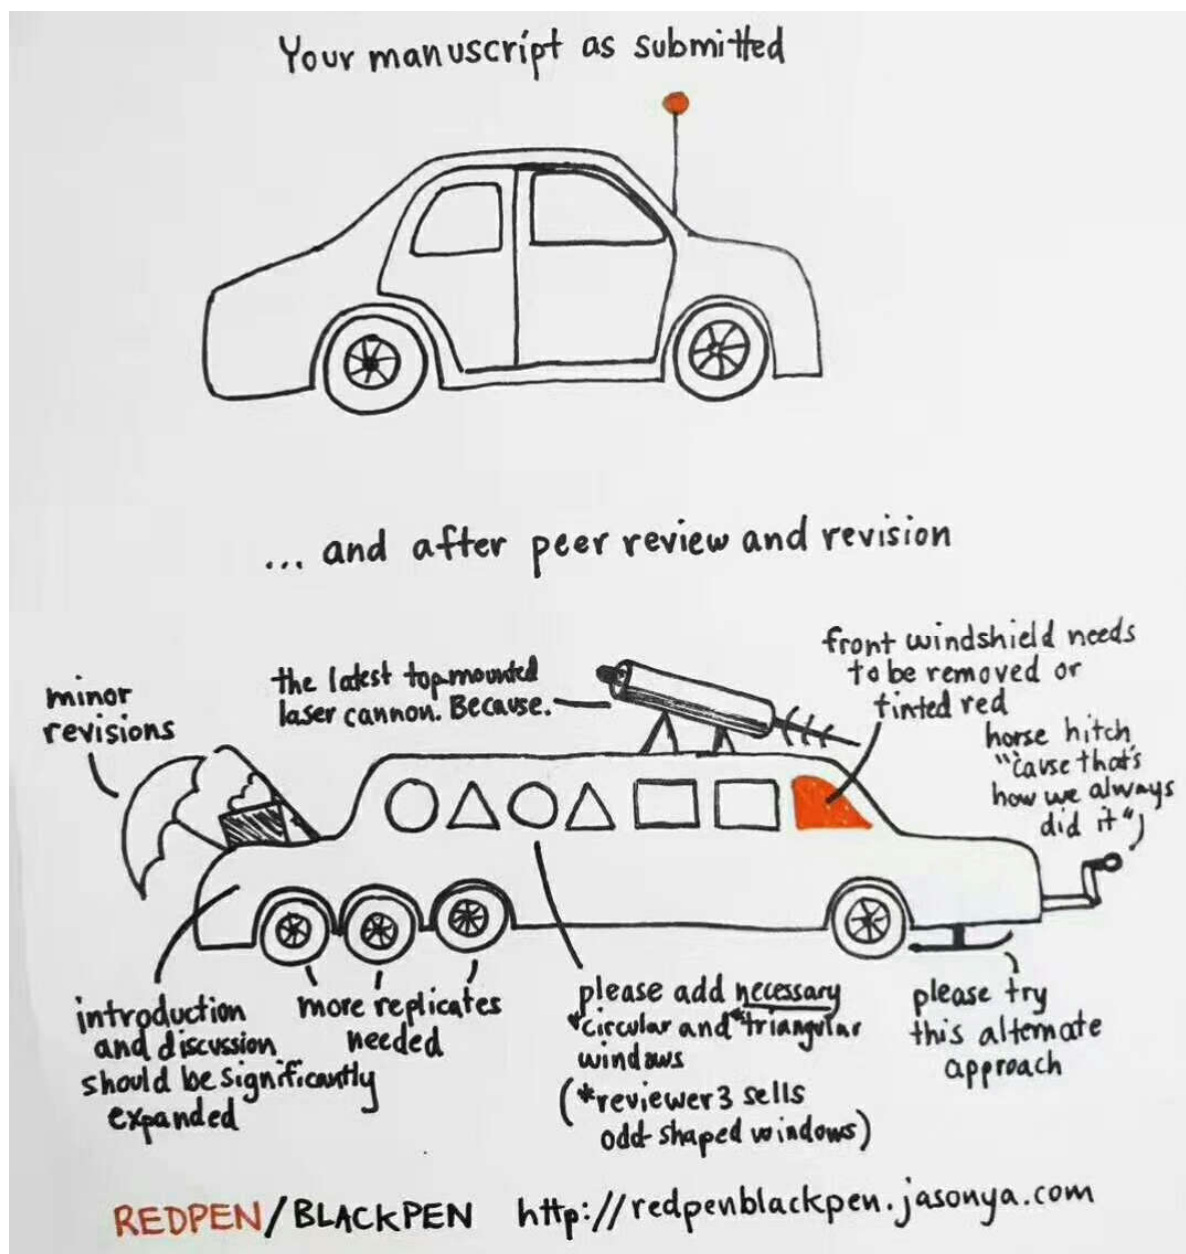 Your manuscript as submitted
... and after peer review and revision
minor
revisions
the latest top mounted
laser cannon. Because.
front windshield needs
to be removed or
tinted red
horse hitch
"'cause that's
how we always
did it"
introduction
and discussion
should be significantly
expanded
more replicates
needed
please add necessary
*circular and *triangular
windows
(*reviewer 3 sells
odd shaped windows)
please try
this alternate
approach
REDPEN/BLACKPEN http://redpenblackpen.jasonya.com